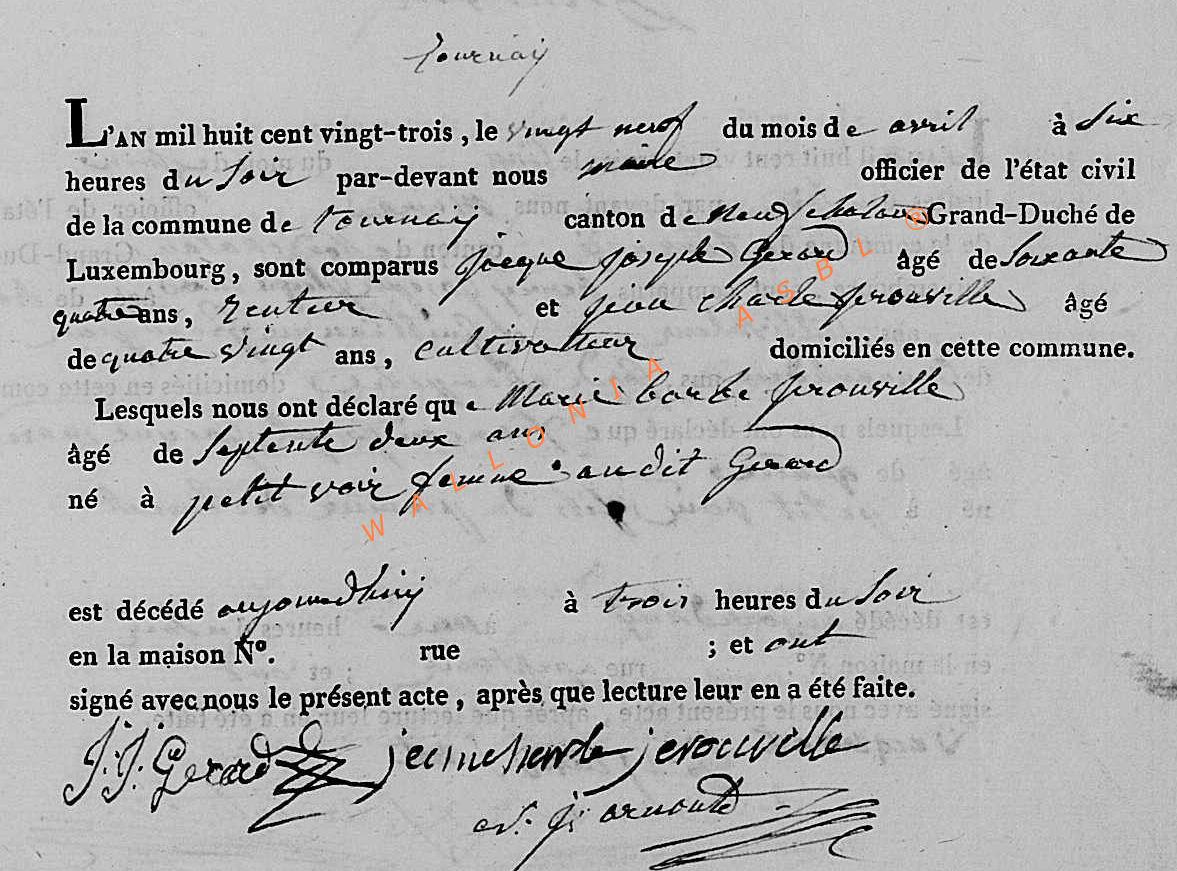 tournay
L'AN mil huit cent vingt-trois, le vingt neuf du mois de avril à Six
heures du Soir par-devant nous maire officier de l'état civil
de la commune de tournay canton de Neufchateau Grand-Duché de
Luxembourg, sont comparus jacque joseph Gerard âgé de Soixante
quatre ans, Rentier et jean charle jerouville âgé
de quatre vingt ans, cultivatteur domiciliés en cette commune.
Lesquels nous ont déclaré que Marie barbe jerouville
âgé de Septente deux ans
né à petit voir femme audit Gerard
est décédé aujourdhuy à trois heures du Soir
en la maison N°. rue ; et ont
signé avec nous le présent acte, après que lecture leur en a été faite.
J: J: Gerard jean charle jerouville
arnould
WALLONIA ASBL ©